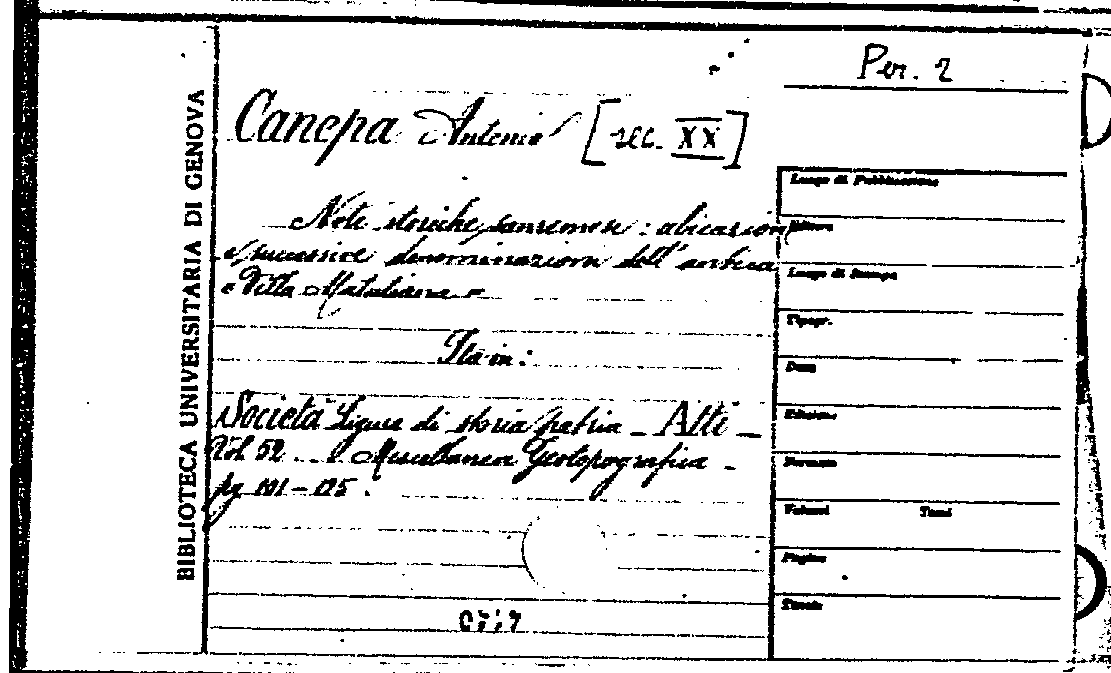 Per. 2
BIBLIOTECA UNIVERSITARIA DI GENOVA
Canepa Antonio [sec. XX]
Note storiche sanremesi: ubicazioni
e successive denominazioni dell'antica
"Villa Matutiana"
Sta in:
Società Ligure di storia patria - Atti -
Vol 52 Miscellanea Geotopografica -
pg 101-125.
Luogo di Pubblicazione
Editore
Luogo di Stampa
Tipogr.
Data
Edizione
Formato
Volumi Tomi
Pagine
Tavole